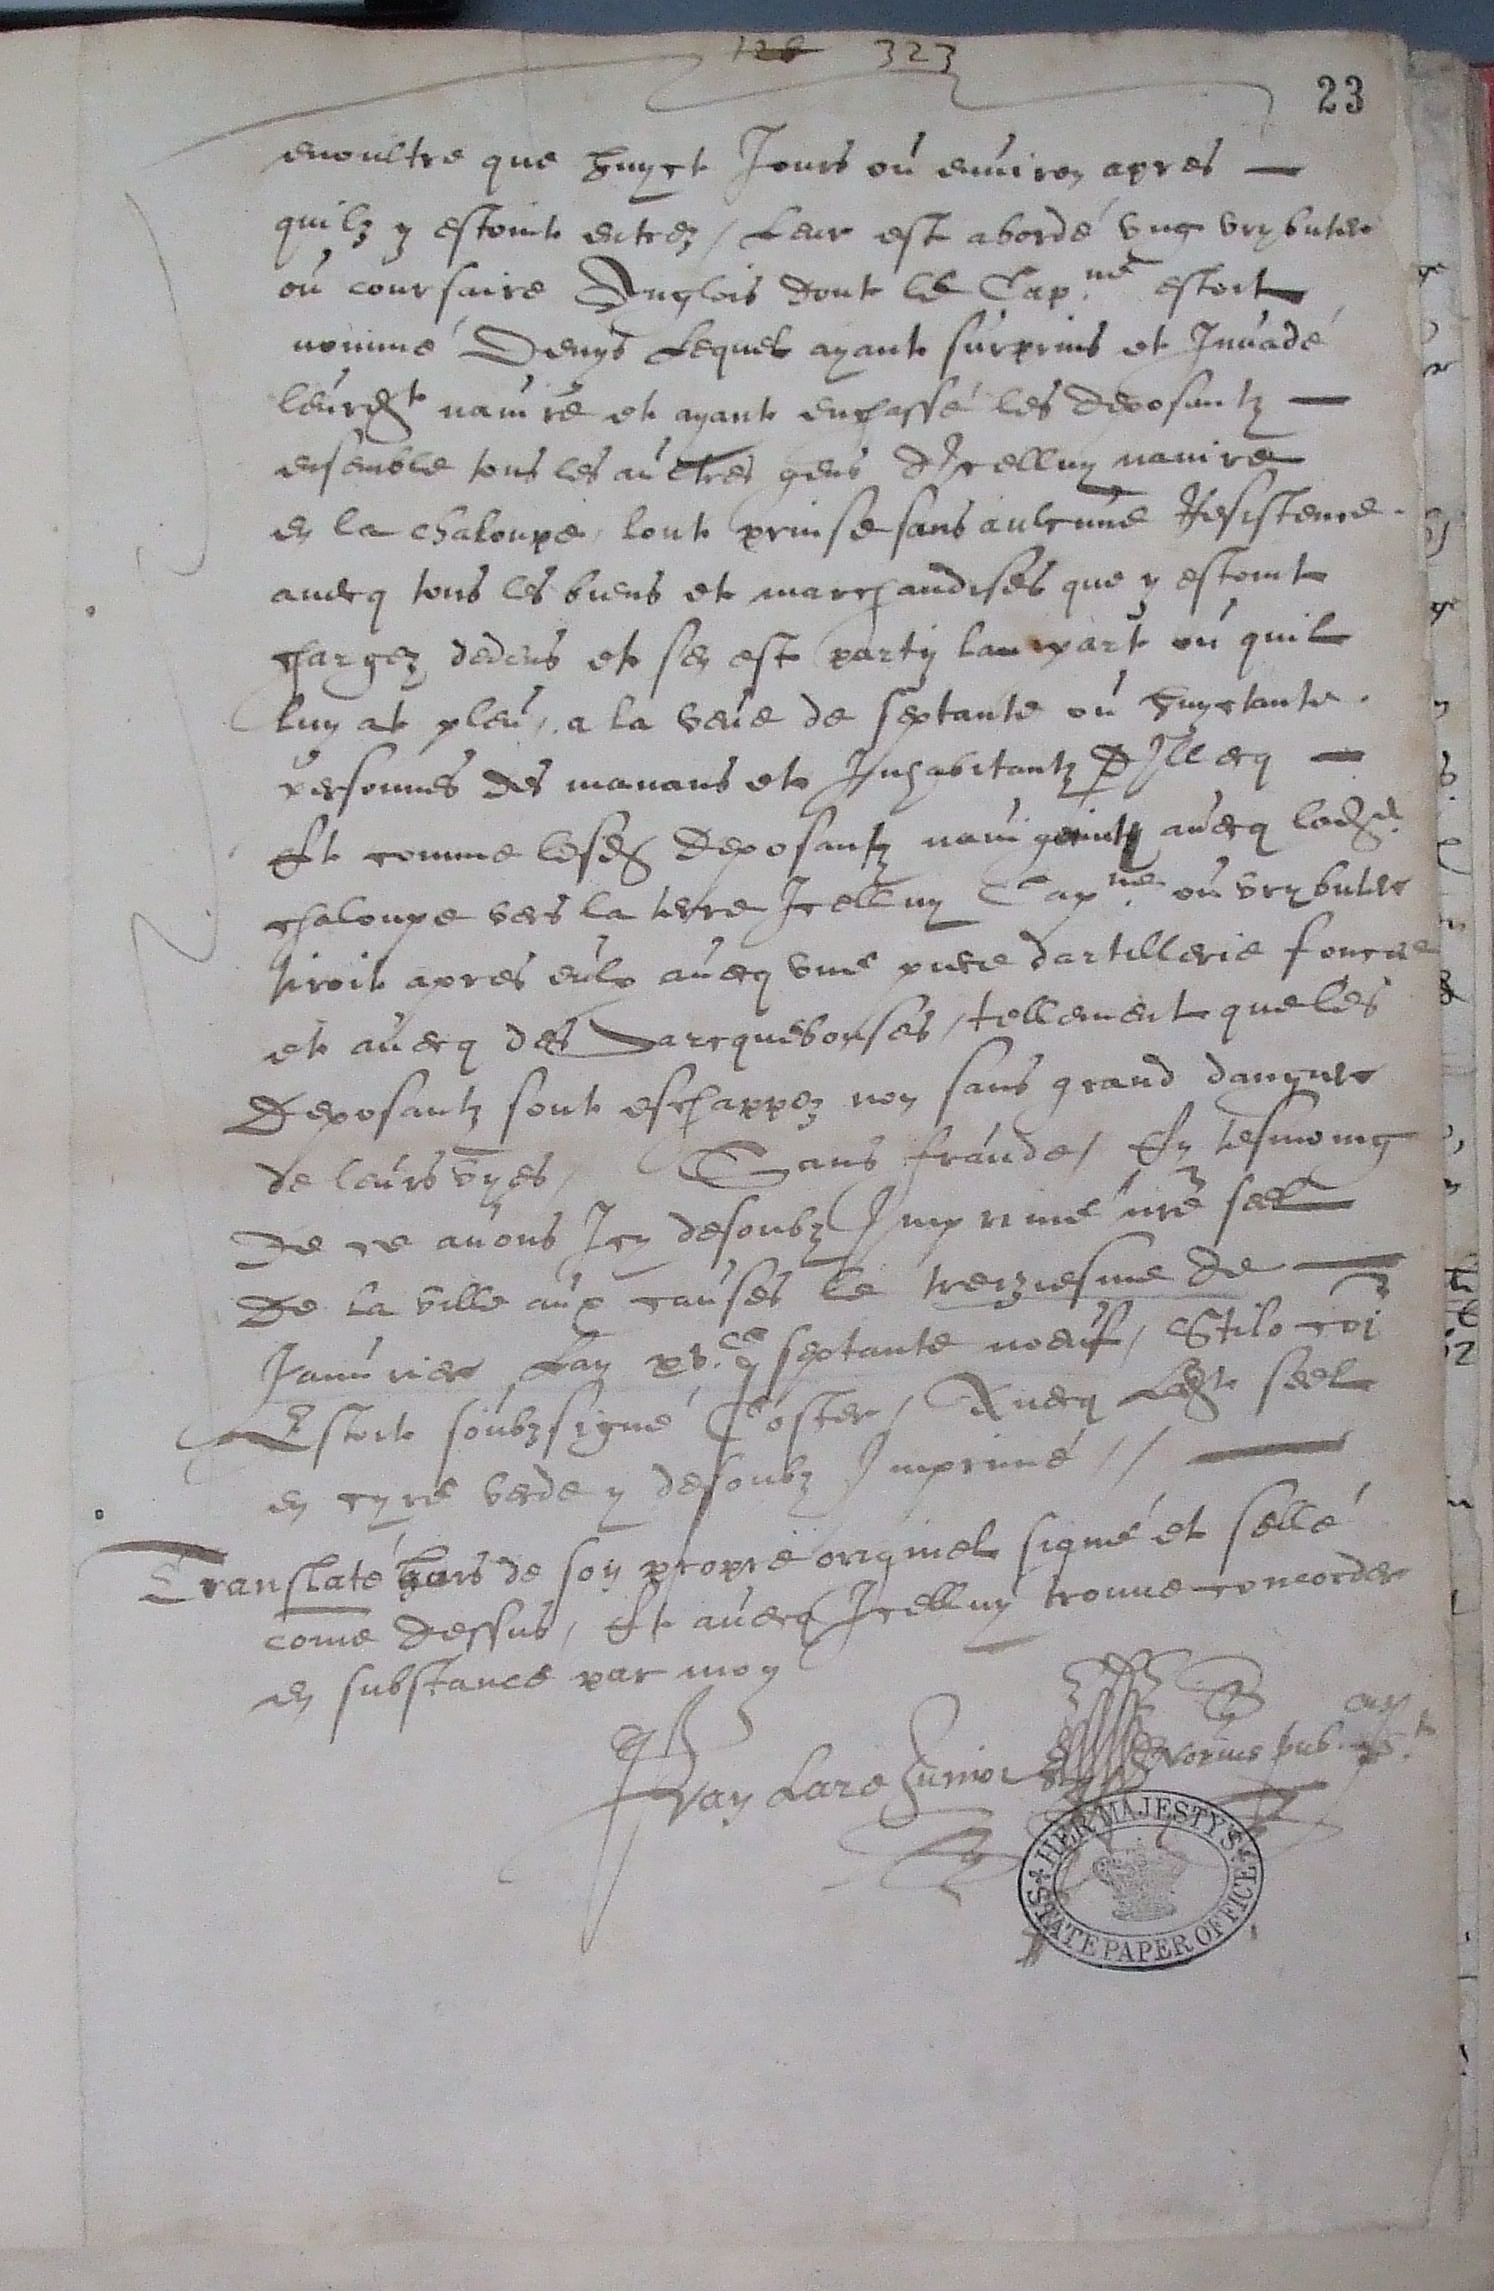 126 323
23
enoultre que huyct Jours ou environ apres
quilz y estoint entrez / Leur est abordé ung vrybuter
ou coursaire Anglois dont le Cap.ne estoit
nommé Denys Lequel ayant surprins et Invadé
leurdt navire et ayant enchassé les deposantz
ensemble tous les aultres gens dIcelluy navire
en la chaloupe, lont prinse sans aulcune Resistence
avecq tous les biens et marchandises que y estoint
chargez dedens et sen est party la part ou quil
luy at pleu, a la veue de septante ou huyctante
personnes des manans et Inhabitantz dIllecq
Et comme lesd deposantz navigeint avecq lad.
chaloupe vers la terre Icelluy Capne ou vrybuter
tiroit apres eulx avecq une piece dartillerie
et avecq des harcquebouses, tellement que les
Deposantz sont eschappez non sans grand dangier
de leurs vyes, Sans fraude, En tesmoing
de ce avons Icy desoubz Imprimé nre seel
De la ville aux causes le treiziesme de
Januvier Lan xv.c septante noeuf, Stilo coi
Estoit soubzsigné Coster, Avecq ledt seel
en cyre verde y desoubz Imprimé //
Translaté hors de son propre originel signé et sellé
come dessus, Et avecq Icelluy trouve concorder
en substance par moy
Van Lare Junior Norius pub.
HER MAJESTY'S STATE PAPER OFFICE